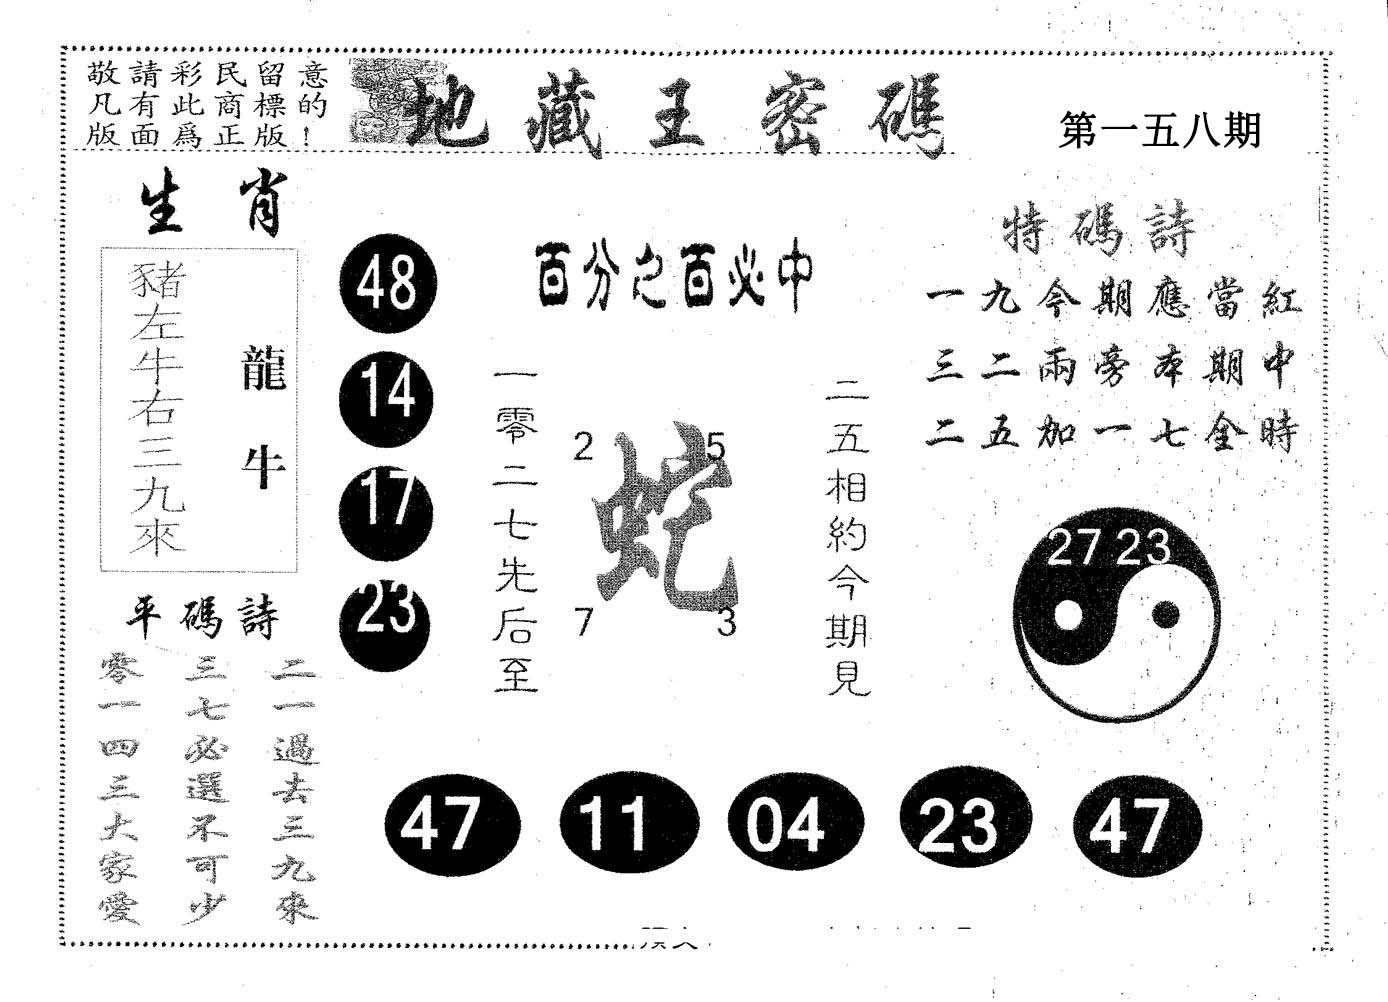 敬請彩民留意
凡有此商標的
版面爲正版！
地藏王密碼
第一五八期
生肖
豬左牛右三九來
龍牛
48
14
17
23
百分之百必中
一零二七先后至
2 5
蛇
7 3
二五相約今期見
特碼詩
一九今期應當紅
三二兩旁本期中
二五加一七金時
27 23
平碼詩
二一過去三九來
三七必選不可少
零一四三大家愛
47 11 04 23 47